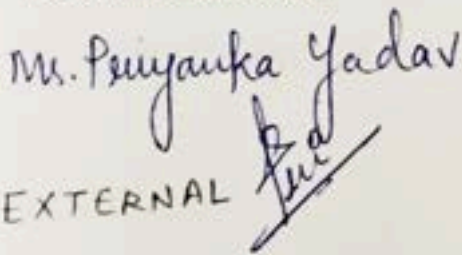 Ms. Priyanka Yadav
EXTERNAL